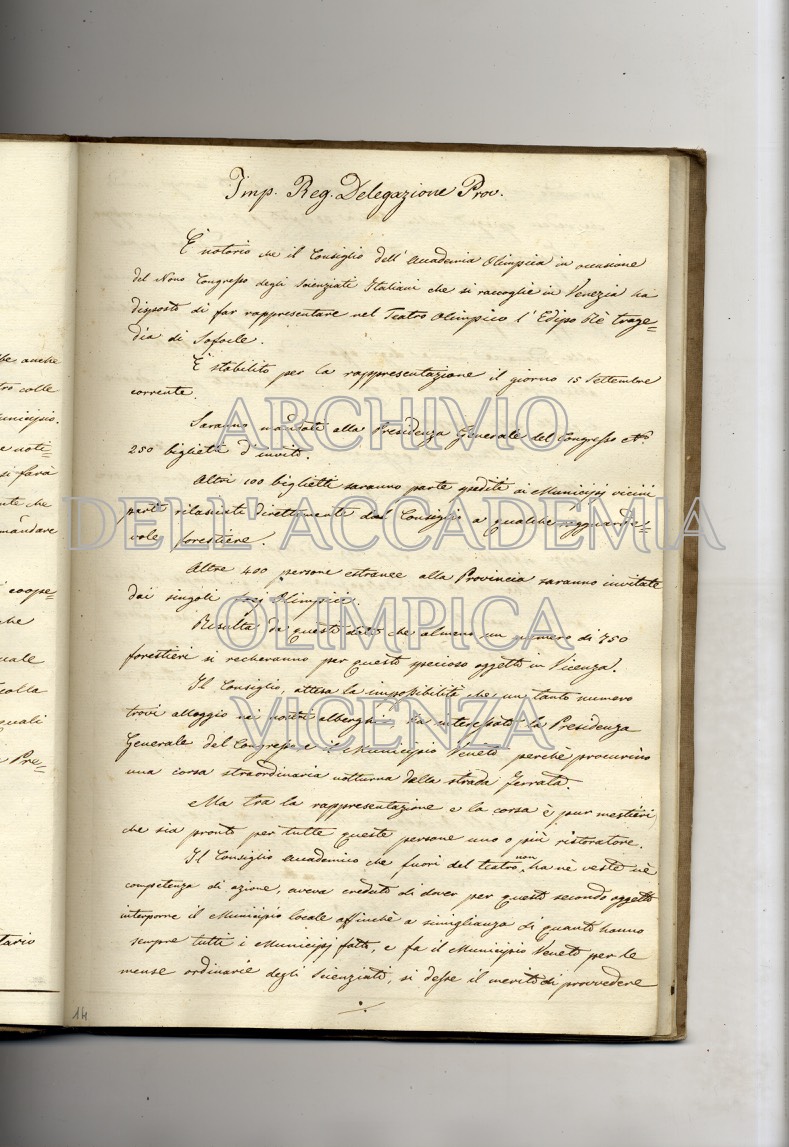 be anche
tro colle
unicipio.
e noti=
si farà
nte che
mandare
coope=
che
uale
colla
quali
Pre=
tario
Imp. Reg. Delegazione Prov.
È notorio che il Consiglio dell'Accademia Olimpica in occasione
del Nono Congresso degli Scienziati Italiani che si raccoglie in Venezia ha
disposto di far rappresentare nel Teatro Olimpico l'Edipo Rè trage=
dia di Sofocle.
È stabilito per la rappresentazione il giorno 15 Settembre
corrente.
Saranno mandati alla Presidenza Generale del Congresso No.
250 biglietti d'invito.
Altri 100 biglietti saranno parte spediti ai Municipj vicini
parte rilasciati direttamente dal Consiglio a qualche ragguarde=
vole forestiere.
Altre 400 persone estranee alla Provincia saranno invitate
dai singoli Socj Olimpici.
Risulta da questi dati che almeno un numero di 750
forestieri si recheranno per questo specioso oggetto in Vicenza.
Il Consiglio, attesa la impossibilità che un tanto numero
trovi alloggio nei nostri alberghi ha interessato la Presidenza
Generale del Congresso e il Municipio Veneto perchè procurino
una corsa straordinaria notturna della strada ferrata.
Ma tra la rappresentazione e la corsa è pur mestieri
che sia pronto per tutte queste persone uno o più ristoratore.
Il Consiglio Accademico che fuori del teatro non ha nè veste nè
competenza di azione, aveva creduto di dover per questo secondo oggetto
interporre il Municipio locale affinchè a simiglianza di quanto hanno
sempre tutti i Municipj fatto, e fa il Municipio Veneto per le
mense ordinarie degli Scienziati, si desse il merito di provvedere
./.
14
ARCHIVIO
DELL'ACCADEMIA
OLIMPICA
VICENZA